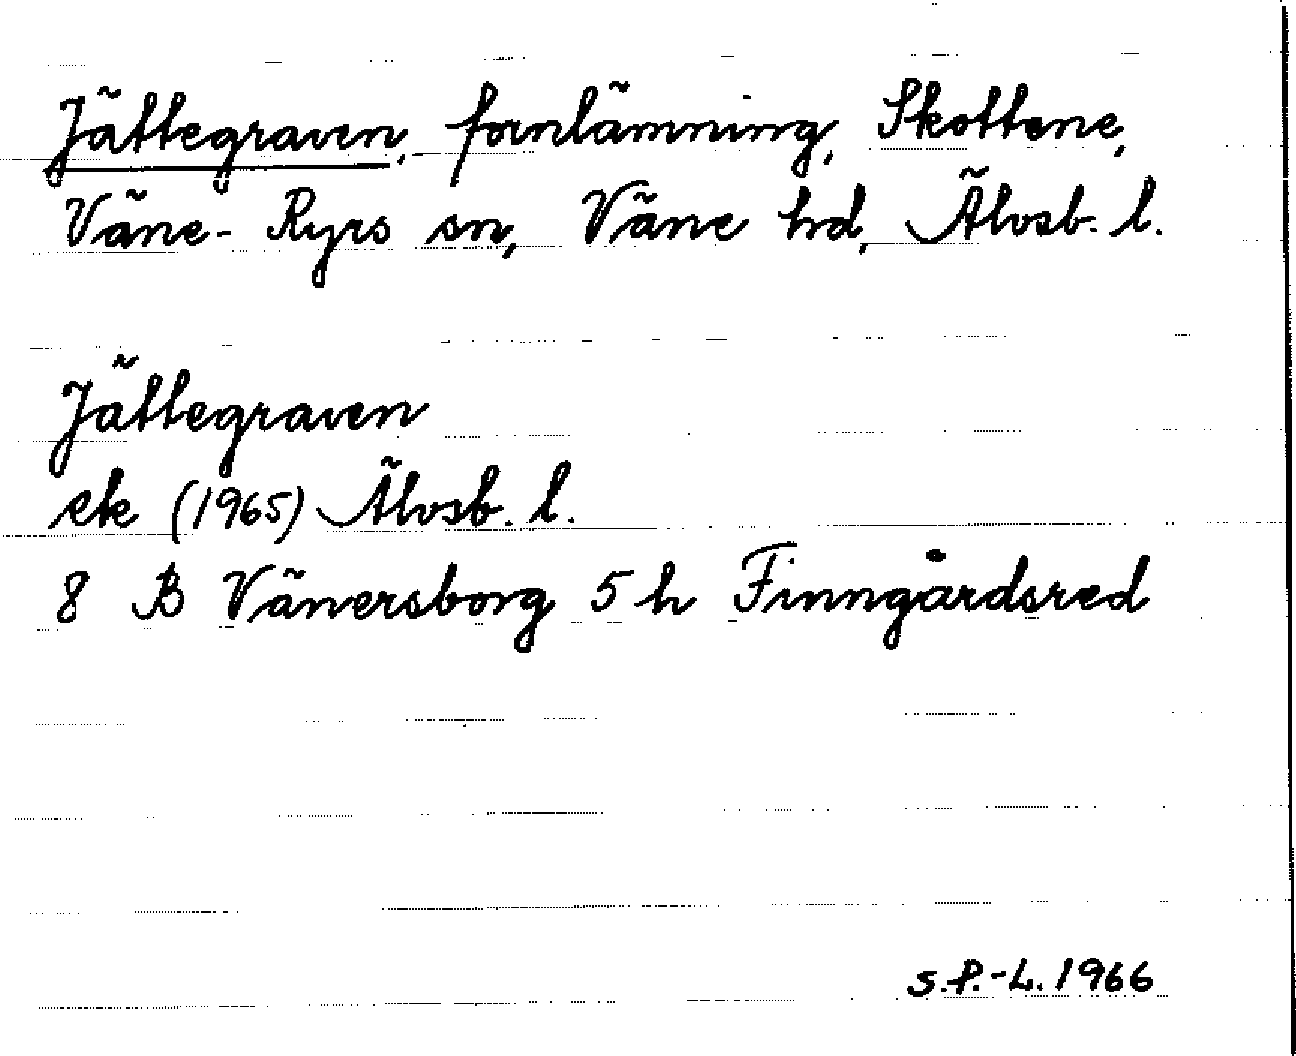 Jättegraven, fornlämning, Skottene,
Väne-Ryrs sn, Väne hd, Älvsb. l.
Jättegraven
ek (1965) Älvsb. l.
8 B Vänersborg 5 h Finngårdsred
S.P.-L. 1966